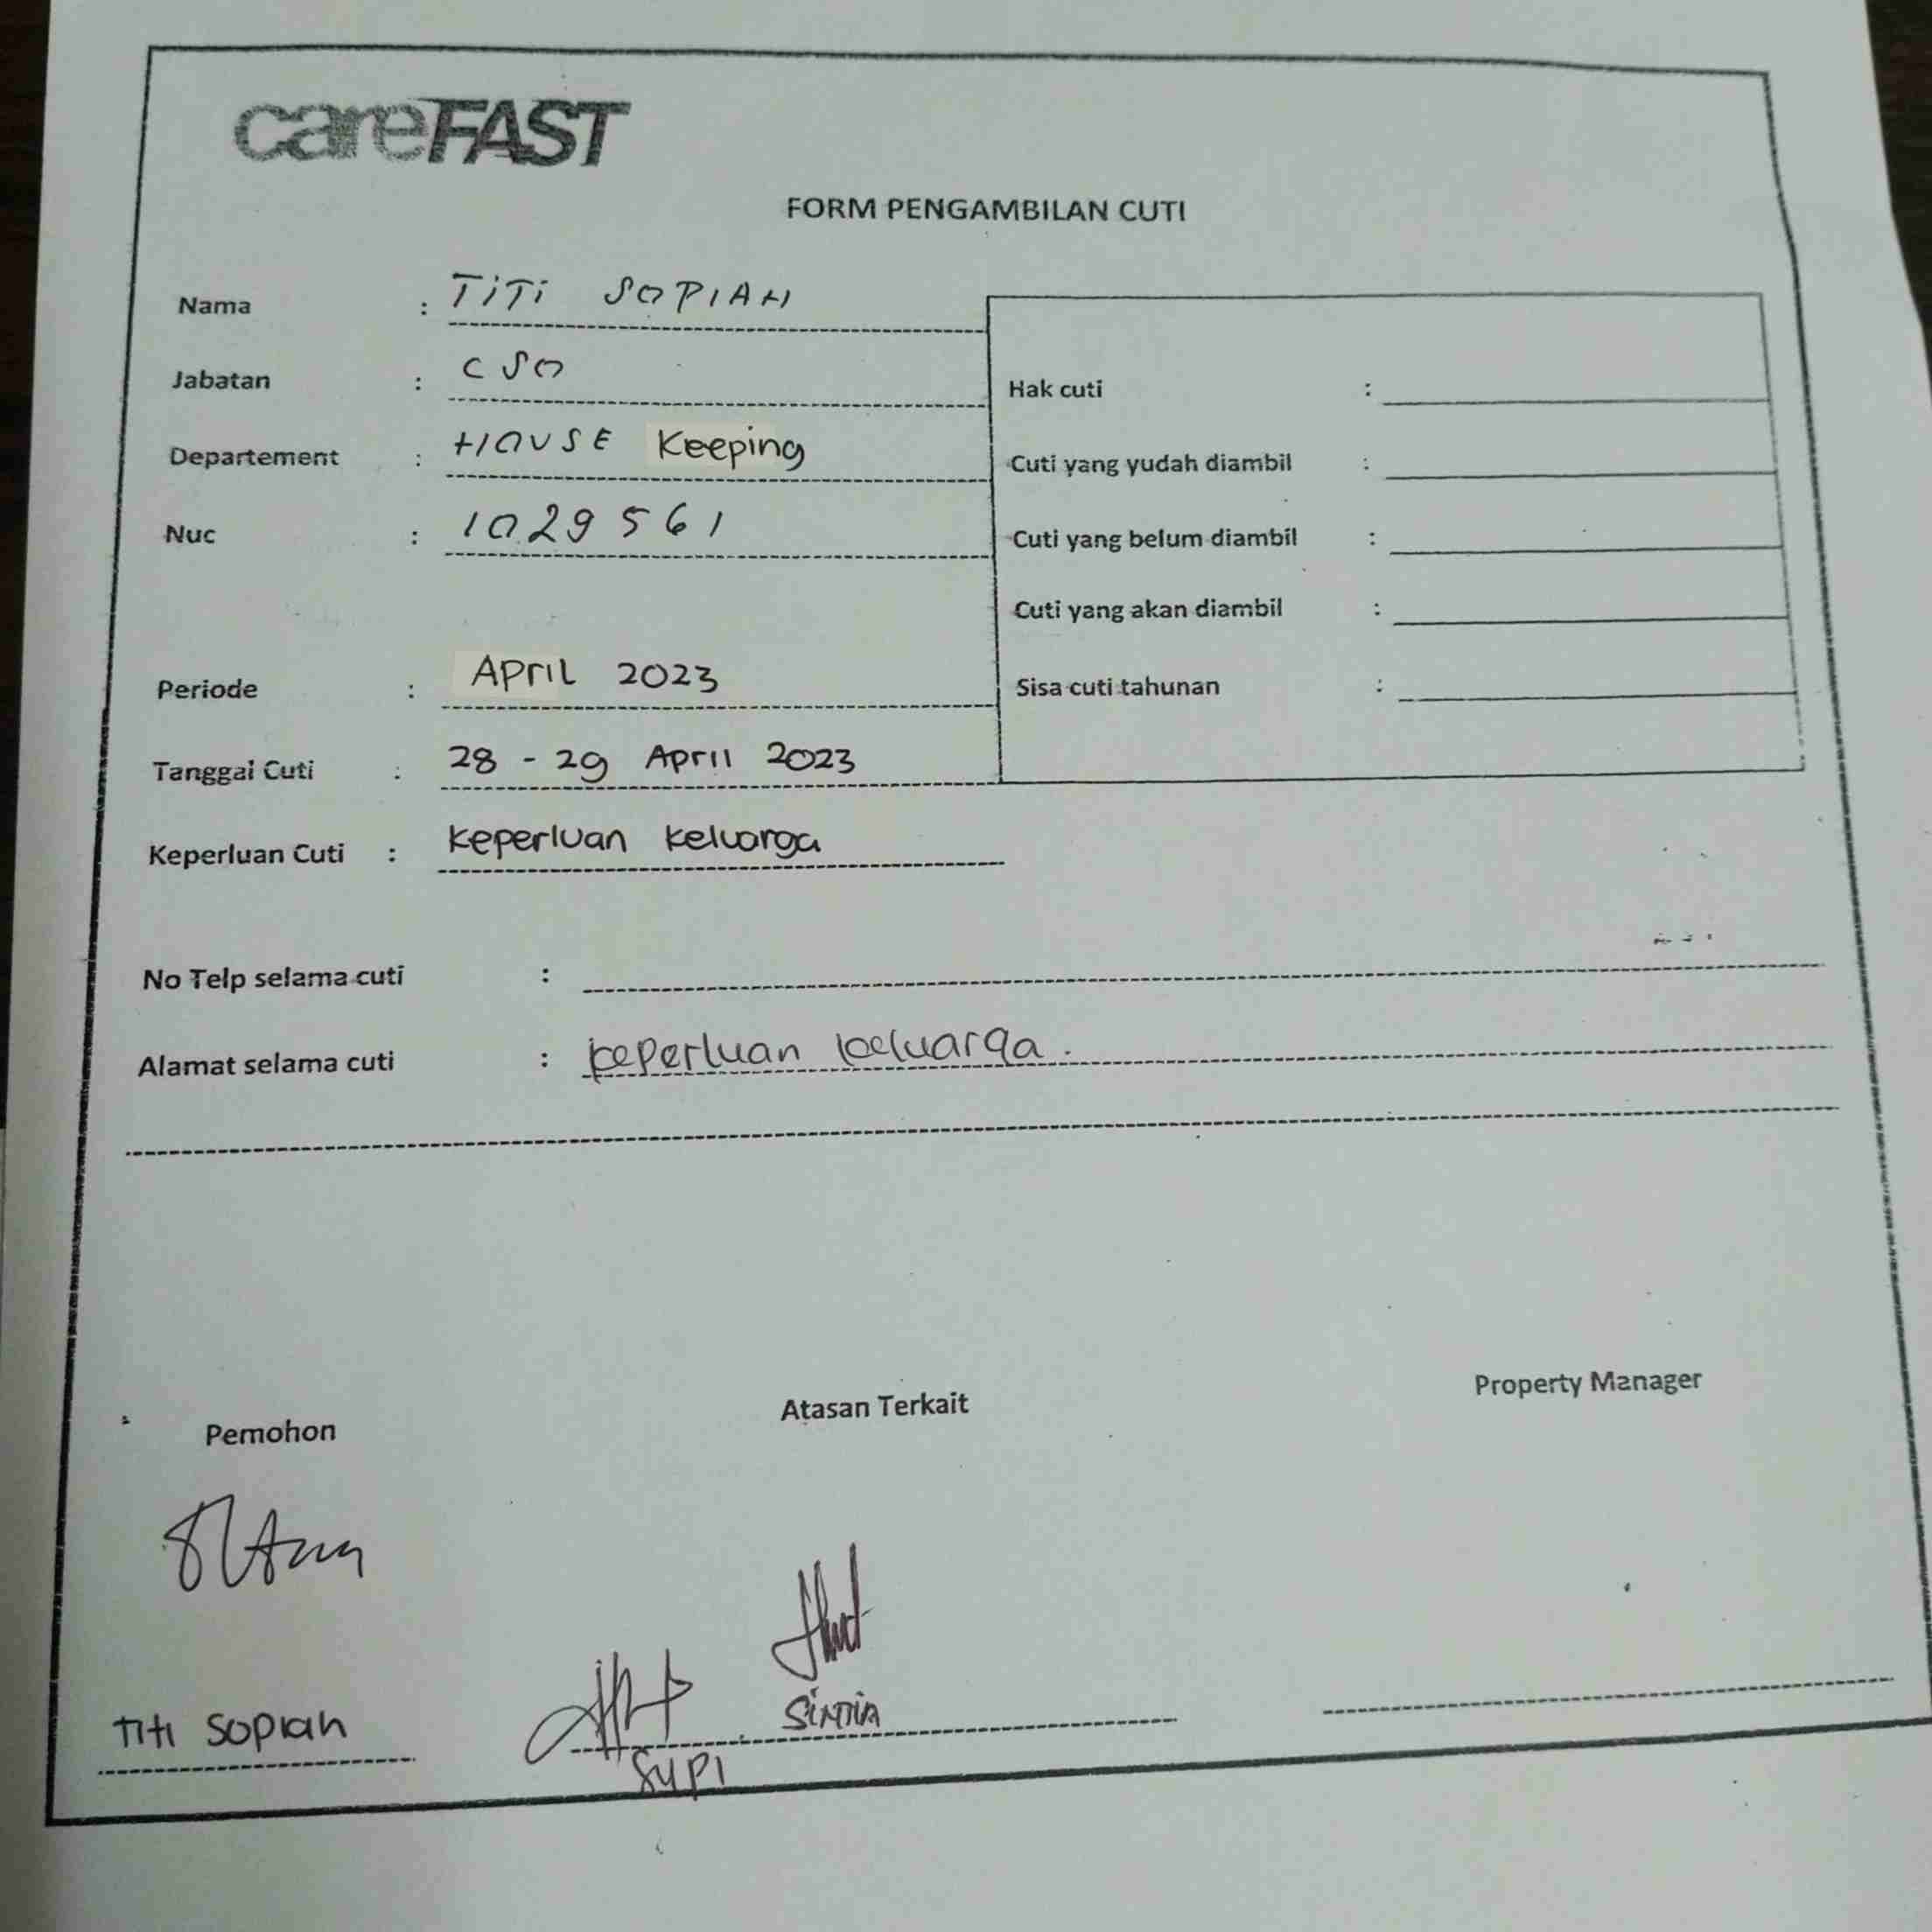 careFAST
FORM PENGAMBILAN CUTI
Nama : TiTi SOPIAH
Jabatan : CSO
Departement : HOUSE Keeping
Nuc : 1029561
Hak cuti :
Cuti yang yudah diambil :
Cuti yang belum diambil :
Cuti yang akan diambil :
Sisa cuti tahunan :
Periode : APRIL 2023
Tanggal Cuti : 28 - 29 April 2023
Keperluan Cuti : keperluan keluarga
No Telp selama cuti :
Alamat selama cuti : keperluan keluarga.
Pemohon
Atasan Terkait
Property Manager
Titi Sopiah
SiNTiA
SYPI